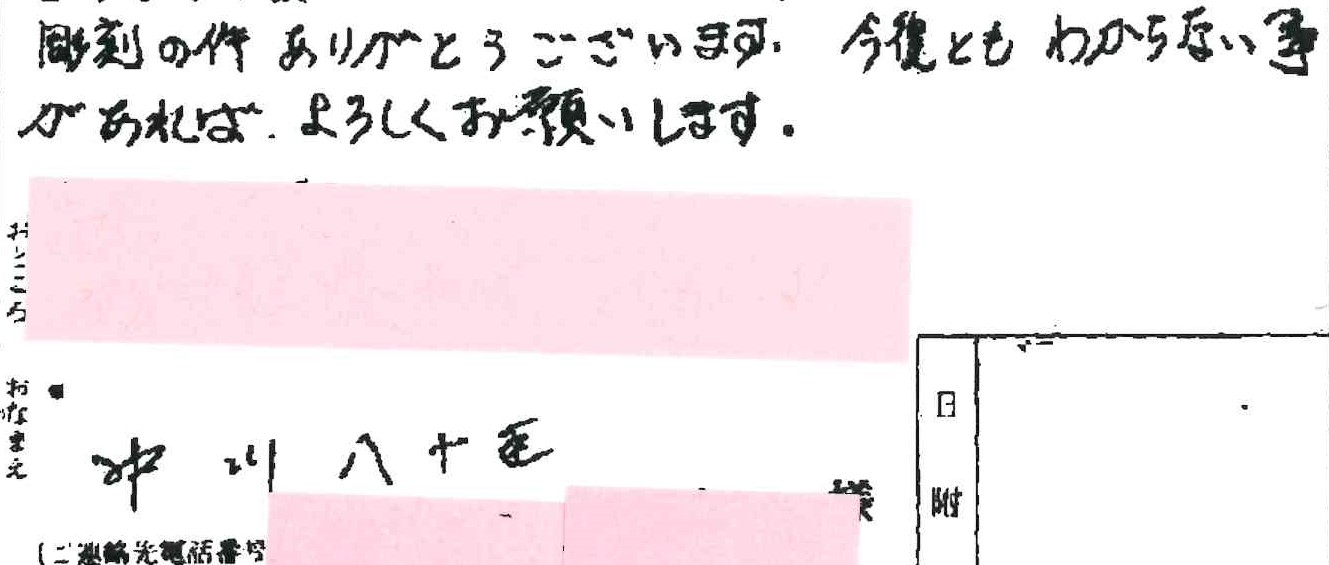 彫刻の件 ありがとうございます. 今後とも わからない事
があれば. よろしくお願いします.
おところ
おなまえ
川 八十
様
(ご連絡先電話番号
日附